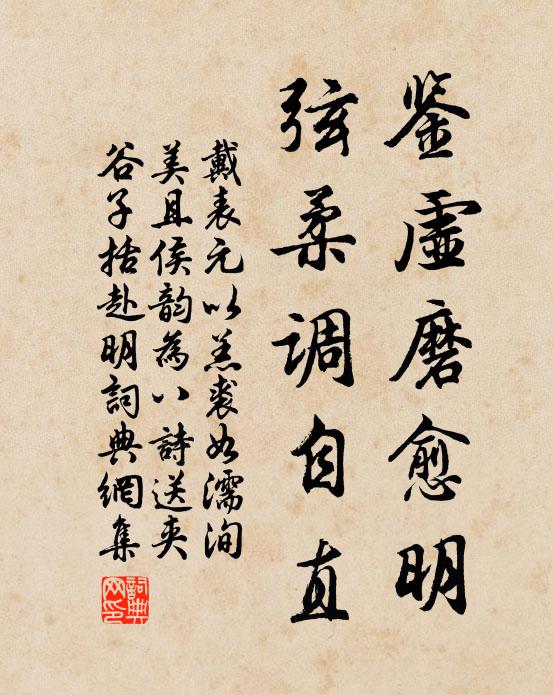 鉴虚磨愈明
弦柔调自直
戴表元以羔裘如濡洵
美且侯韵為八詩送夹
谷子括赴明詞典網集
詞典网印